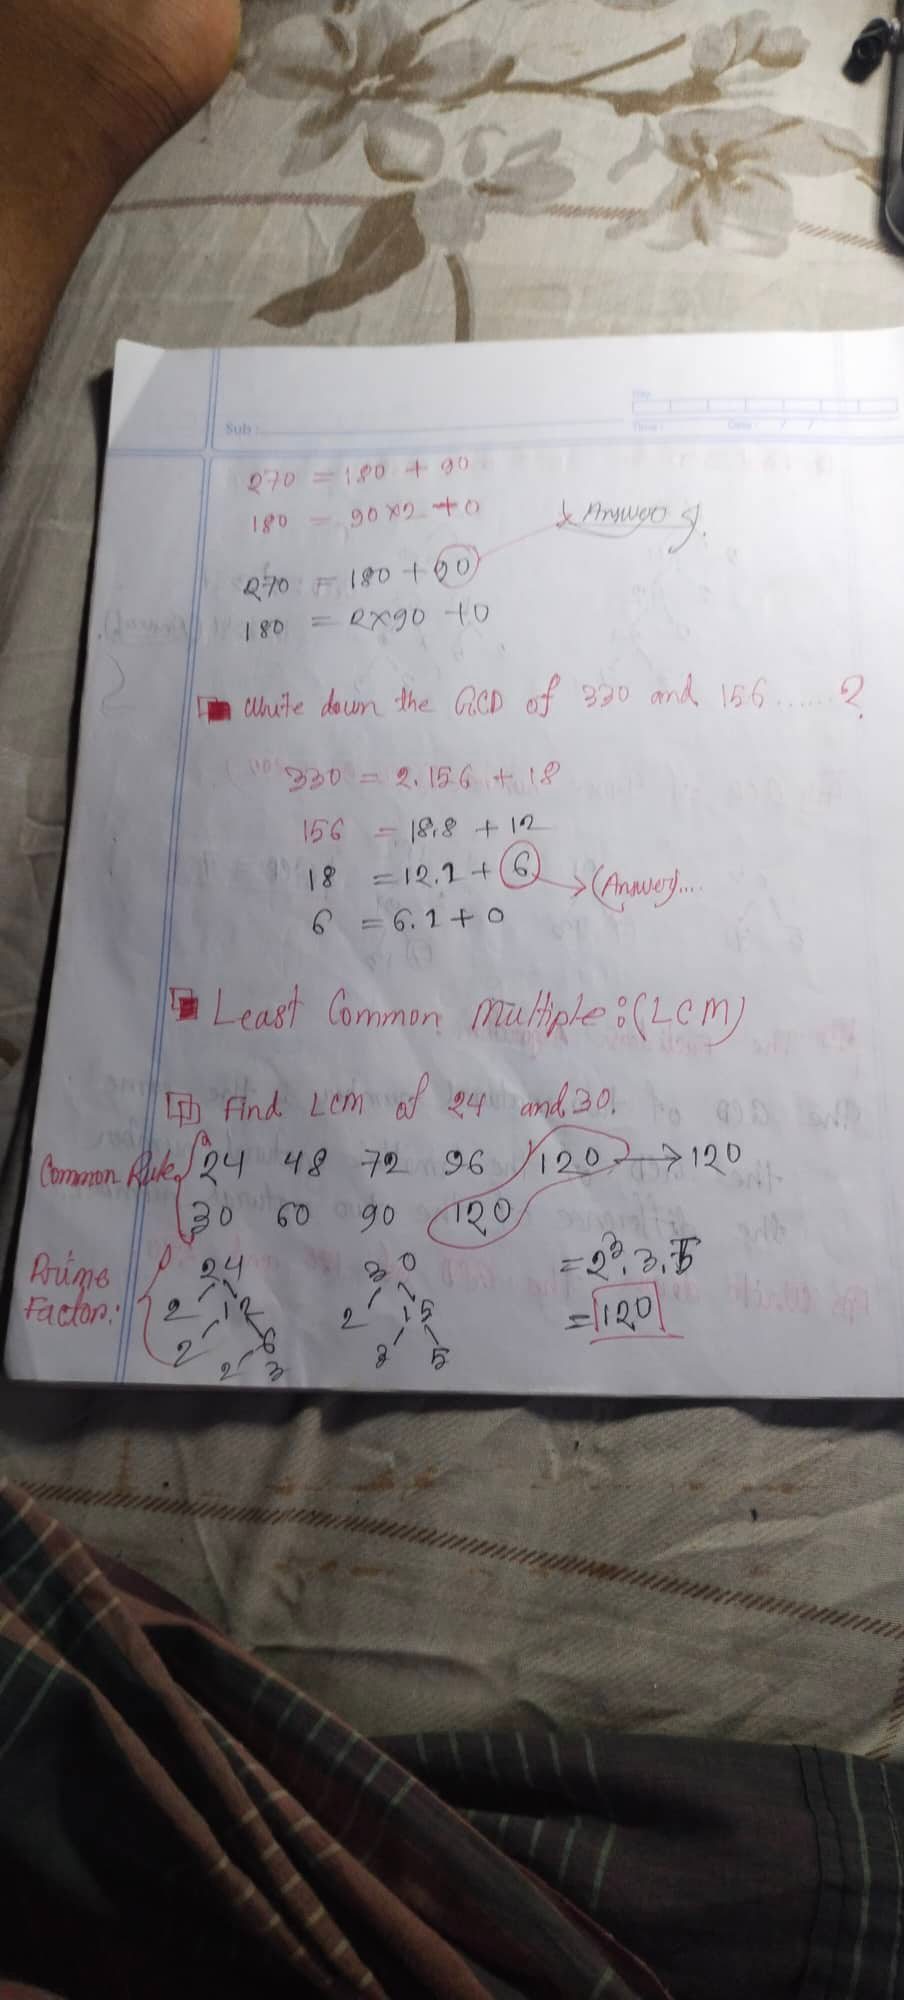 Sub:
Day
Time: Date: / /
270 = 180 + 90
180 = 90×2 + 0
270 = 180 + 90
180 = 2×90 + 0
Write down the GCD of 330 and 156 ......?
330 = 2.156 + 18
156 = 18.8 + 12
18 = 12.1 + 6 → (Answer)...
6 = 6.1 + 0
Least Common Multiple: (LCM)
Find LCM of 24 and 30.
Common Rule 24 48 72 96 120 → 120
30 60 90 120
Prime Factor:
24 30 = 2³.3.5
2 12 2 15 = 120
2 6 3 5
2 3